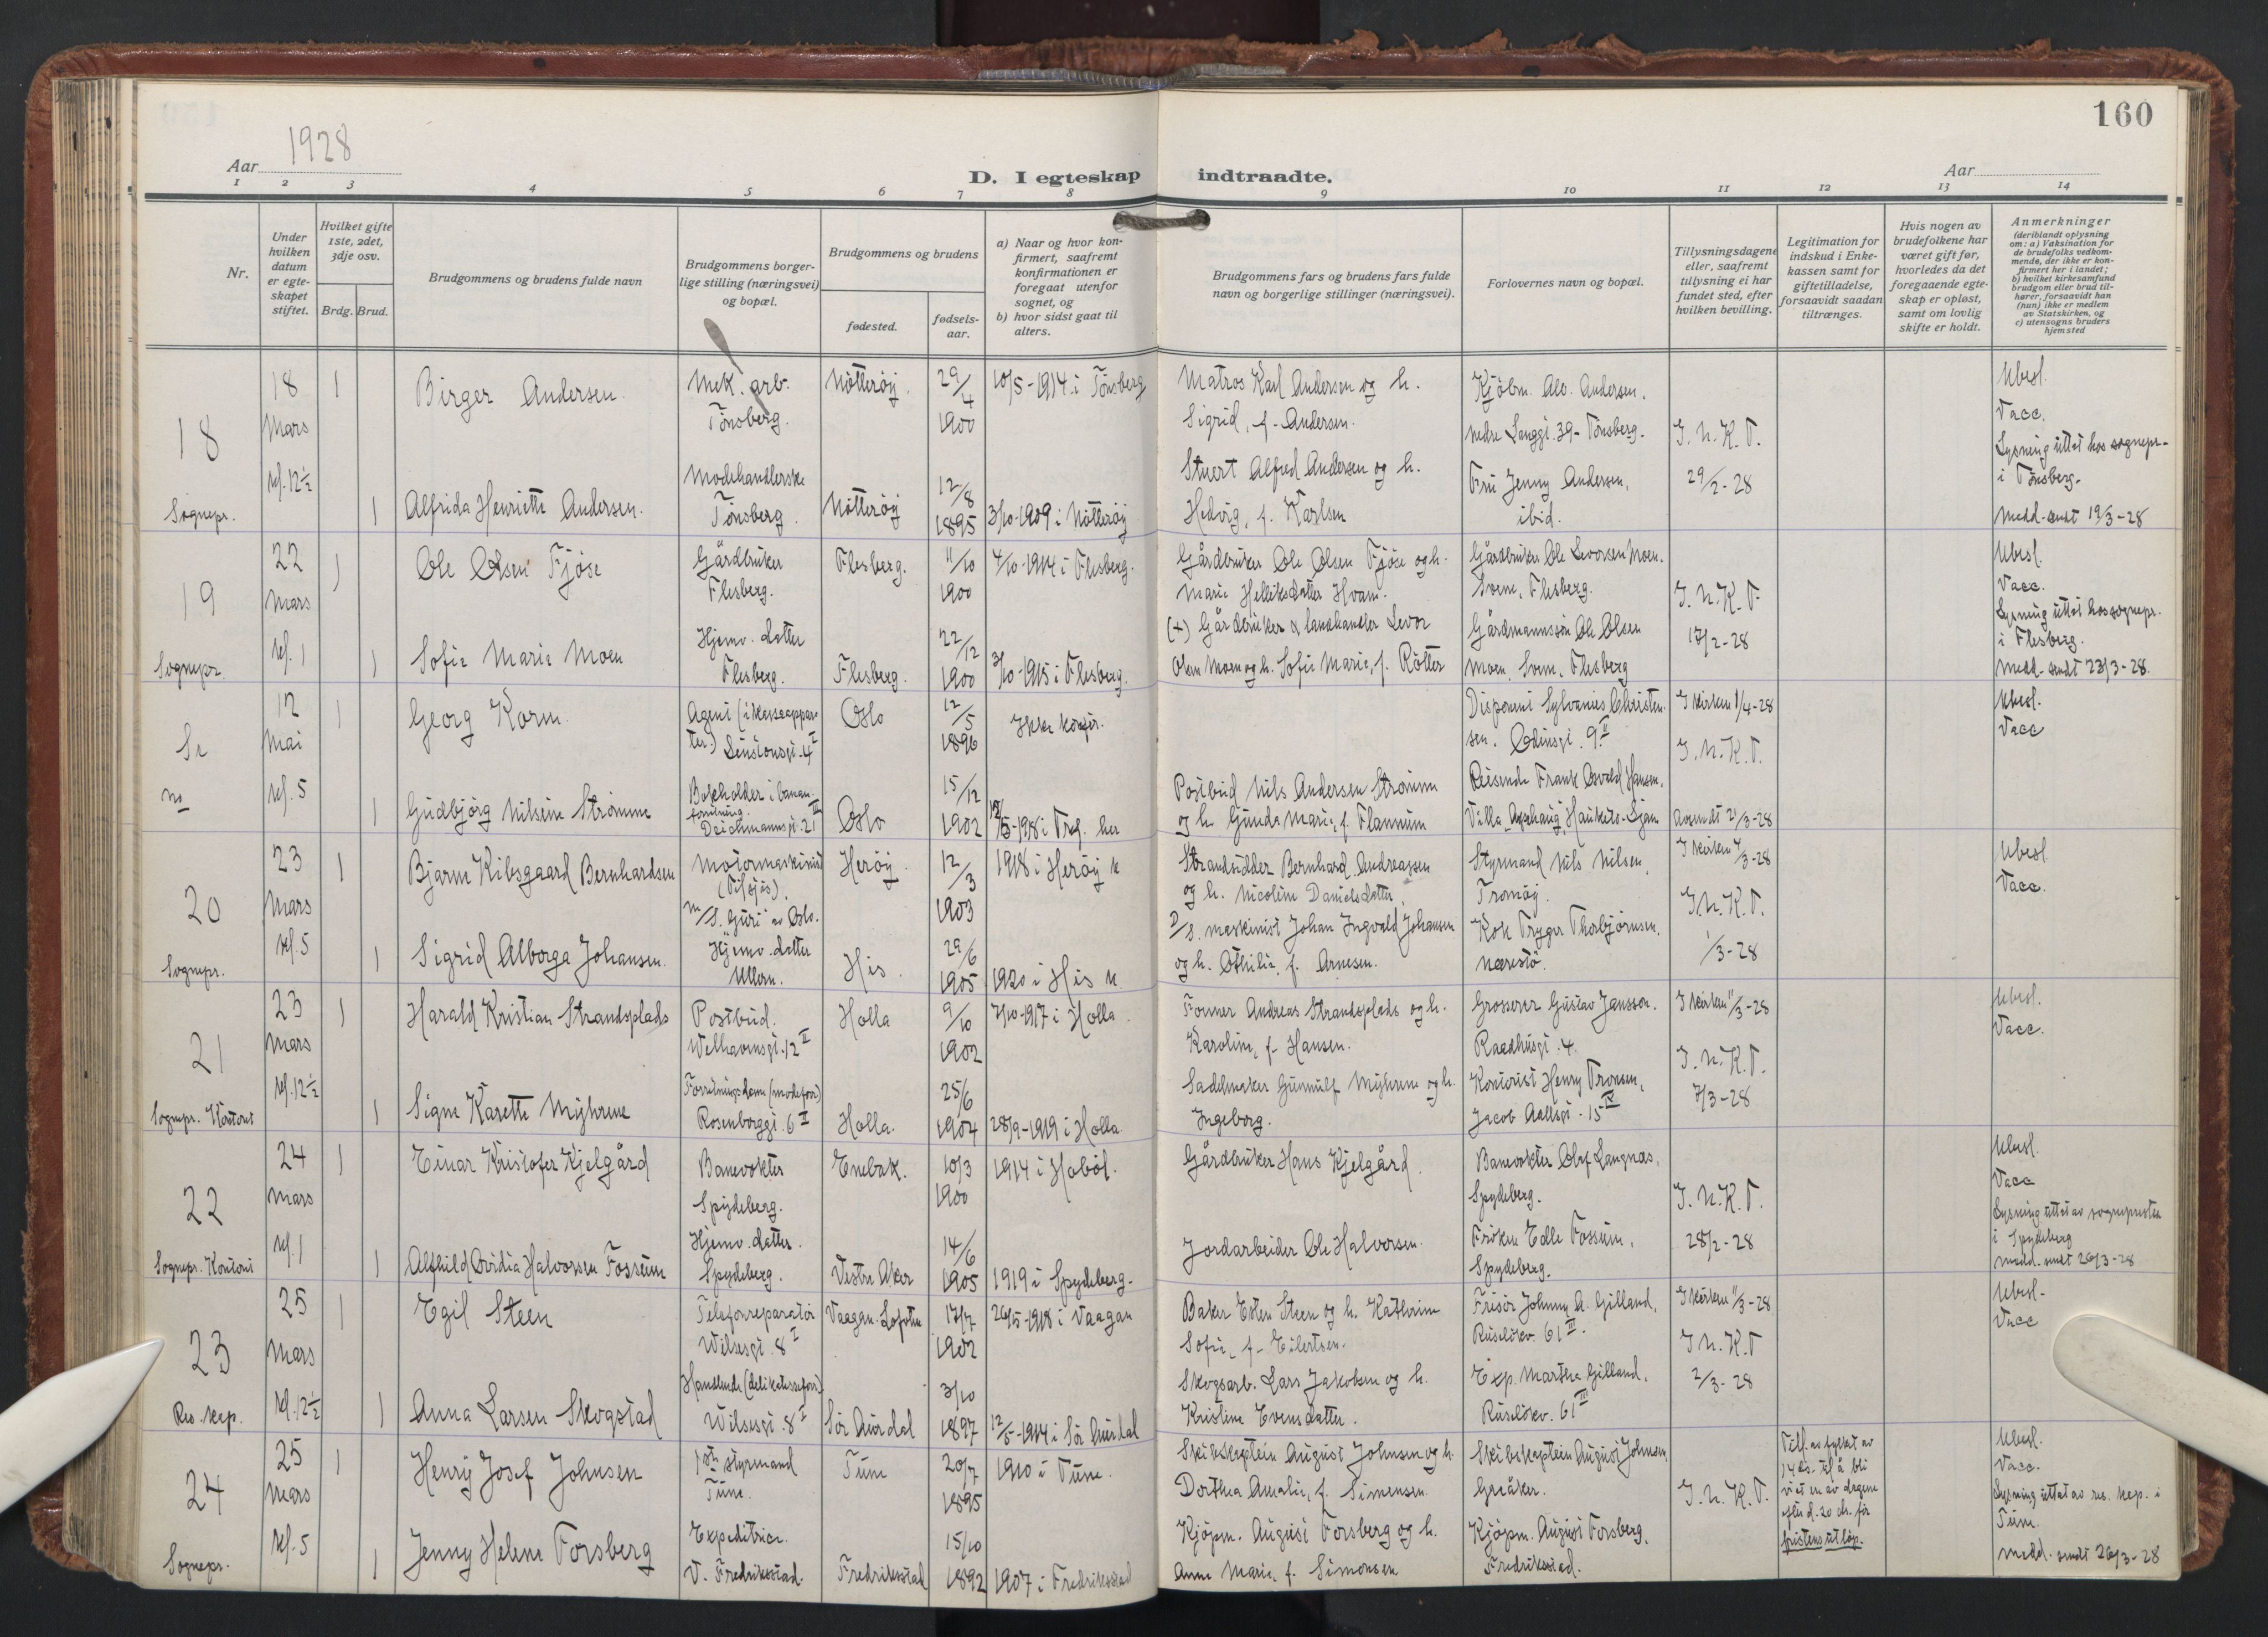 160
Aar 1928
D. I egteskap indtraadte.
Aar
1 2 3 4 5 6 7 8 9 10 11 12 13 14
Nr.
Under hvilken datum er egteskapet stiftet.
Hvilket gifte 1ste, 2det, 3dje osv.
Brdg. Brud.
Brudgommens og brudens fulde navn
Brudgommens borgerlige stilling (næringsvei) og bopæl.
Brudgommens og brudens
fødested.
fødselsaar.
a) Naar og hvor konfirmert, saafremt konfirmationen er foregaat utenfor sognet, og
b) hvor sidst gaat til alters.
Brudgommens fars og brudens fars fulde navn og borgerlige stillinger (næringsvei).
Forlovernes navn og bopæl.
Tillysningsdagene eller, saafremt tillysning ei har fundet sted, efter hvilken bevilling.
Legitimation for indskud i Enkekassen samt for giftetilladelse, forsaavidt saadan tiltrænges.
Hvis nogen av brudefolkene har været gift før, hvorledes da det foregaaende egteskap er opløst, samt om lovlig skifte er holdt.
Anmerkninger (deriblandt oplysning om: a) Vaksination for de brudefolks vedkommende, der ikke er konfirmert her i landet; b) hvilket kirkesamfund brudgom eller brud tilhører, forsaavidt han (hun) ikke er medlem av Statskirken, og c) utensogns bruders hjemsted
18
18 Mars kl. 12½
Sognepr.
1 Birger Andersen.
Mek. arb. Tönsberg.
Nötteröy.
29/4 1900
10/5-1914 i Tönsberg
Matros Karl Andersen og h. Sigrid, f. Andersen.
Kjöbm. Alv. Andersen. Nedre Langgt. 39 - Tönsberg.
I. N. K. T.
29/2-28
Ubesl.
Vacc.
Lysning uttat hos sognepr. i Tönsberg.
Medd. sendt 19/3-28
1 Alfrida Henriette Andersen.
Modehandlerske Tönsberg.
Nötteröy
12/8 1895
3/10-1909 i Nötteröy
Stuert Alfred Andersen og h. Hedvig, f. Karlsen
Fru Jenny Andersen, ibid.
19
22 Mars kl. 1
Sognepr.
1 Ole Olsen Fjöse
Gårdbruker Flesberg.
Flesberg.
11/10 1900
4/10-1914 i Flesberg.
Gårdbruker Ole Olsen Fjöse og h. Marie Helliksdatter Hvam.
Gårdbruker Ole Levorsen Moen. Svene, Flesberg.
I. N. K. T.
17/2-28
Ubesl.
Vacc.
Lysning uttat hos sognepr. i Flesberg.
Medd. sendt 23/3-28.
1 Sofie Marie Moen
Hjemv. datter Flesberg.
Flesberg.
22/12 1900
3/10-1915 i Flesberg.
(+) Gårdbruker & landhandler Levor Olsen Moen og h. Sofie Marie, f. Rötter
Gårdmannssön Ole Olsen Moen, Svene, Flesberg
Se no
12 Mai kl. 5
1 Georg Korm.
Agent (i kasseapparater.)
Oslo
12/5 1896
Ikke konfir.
Disponent Sylvanius Christensen. Odinsgt. 9 II
I kirken 1/4-28
I. N. K. T.
Ubesl.
Vacc
1 Gudbjörg Nilsine Strömme
Bokholder i banan-forretning. Deichmannsgt. 21 III
Oslo
15/12 1902
12/5-1918 i Tref. her
Postbud Nils Andersen Strömm og h. Gunda Marie, f. Flannum
Reisende Frank Osvald Hansen, Villa Aspehaug, Hauketo-Ljan
Avsendt 21/3-28
20
23 Mars kl. 5
Sognepr.
1 Bjarne Kibsgaard Bernhardsen
Motormaskinist (Tilsjös). M/S. Guri av Oslo.
Heröy
12/3 1903
1918 i Heröy k
Strandsidder Bernhard Andreassen og h. Nicoline Danielsdatter.
Styrmand Nils Nilsen, Tromöy.
I kirken 4/3-28
I. N. K. T.
1/3-28
Ubesl.
Vacc.
1 Sigrid Alborga Johansen.
Hjemv. datter Ullern.
His.
29/6 1905
1920 i His k.
D/S. maskinist Johan Ingvald Johansen og h. Othilie, f. Arnesen.
Kok Trygve Thorbjörnsen. Narestö.
21
23 Mars kl. 12½
Sognepr. Kontort
1 Harald Kristian Strandsplads
Postbud. Welhavensgt. 12 II
Holla
9/10 1902
7/10-1917 i Holla.
Former Andreas Strandsplads og h. Karoline, f. Hansen.
Grosserer Gustav Jansson. Raadhusgt. 4.
I kirken 11/3-28
I. N. K. T.
7/3-28
Ubesl.
Vacc.
1 Signe Karette Myhrene
Forretningsdame (modeforr) Rosenborggt. 6 I
Holla.
25/6 1904
28/9-1919 i Holla.
Sadelmaker Gunnulf Myhrene og h. Ingeborg.
Kontorist Henry Tronsen, Jacob Aallsgt. 15 IV
22
24 Mars kl. 1
Sognepr. Kontort
1 Einar Kristofer Kjelgård
Banevokter Spydeberg.
Enebak.
10/3 1900
1914 i Haböl.
Gårdbruker Hans Kjelgård.
Banevokter Olaf Langnæs, Spydeberg.
I. N. K. T.
28/2-28
Ubesl.
Vacc
Lysning uttat av sogneprsten i Spydeberg
Medd. sendt 26/3-28
1 Alfhild Ovidia Halvorsen Fossum
Hjemv. datter. Spydeberg.
Vestre Aker
14/6 1905
1919 i Spydeberg.
Jordarbeider Ole Halvorsen.
Fröken Edle Fossum, Spydeberg.
23
25 Mars kl. 12½
Res. kap.
1 Egil Steen
Telefonreparatör Wilsesgt. 8 I
Vaagan. Lofoten
17/7 1902
26/5-1918 i Vaagan
Baker Esten Steen og h. Kathrine Sofie, f. Eilertsen.
Frisör Johnny A. Gilland, Ruselökv. 61 III.
I kirken 11/3-28
I N. K. T
2/3-28
Ubesl.
Vacc
1 Anna Larsen Skogstad
Handlende (delikatesseforr) Wilsesgt. 8 I
Sör Aurdal
3/10 1897
12/5-1914 i Sör Aurdal
Skogsarb. Lars Jakobsen og h. Kristine Evensdatter.
Exp. Martha Gilland, Ruselökv. 61 III
24
25 Mars kl. 5
Sognepr.
1 Henry Josef Johnsen
1ste styrmand Tune.
Tune
20/7 1895
1910 i Tune.
Skibskaptein August Johnsen og h. Dorthea Amalie, f. Simensen.
Skibskaptein August Johnsen, Greåker.
I. N. K. T.
av fylket av
å bli viet en av dagene efter d. 20 ds. för fristens utlöp.
Ubesl.
Vacc.
Lysning uttat av res. kap. i Tune.
Medd. sendt 26/3-28
1 Jenny Helene Forsberg
Expeditrice. V. Fredrikstad.
Fredrikstad
15/10 1892
1907 i Fredrikstad
Kjöpm. August Forsberg og h. Anne Marie, f. Simonsen
Kjöpm. August Forsberg, Fredrikstad.